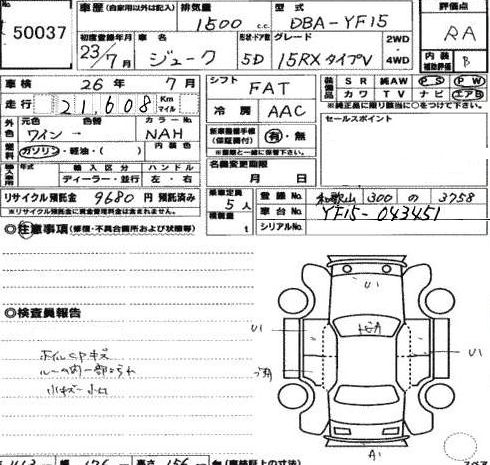 出品No. 50037
車歴 (自家用以外は記入) 排気量 1500 c.c. 型式 DBA-YF15 評価点 RA
初度登録年月 23/7月 車名 ジューク 形状・ドア数 5D グレード 15RX タイプV 2WD 4WD 内装補助評価 B
車検 26年 7月 シフト FAT 装備品 SR 純AW PS PW
カワ TV ナビ エアB
走行 21,608 Km マイル 冷房 AAC ※純正品に限り該当に○をつけて下さい。
外色 元色 ワイン→ 色替 カラーNo. NAH 新車整備手帳(保証書付) 有・無 セールスポイント
※書類と一緒に保管下さい。
燃料 ガソリン・軽油・( ) 内装色 名義変更期限 月 日
輸入車用 年式 輸入区分 ハンドル
ディーラー・並行 左・右
リサイクル預託金 9680円 預託済み 乗車定員 5人 登録No. 和歌山 300 の 3758
※リサイクル預託金に資金管理料金は含まれません。 積載量 t 車台No. YF15-043451
シリアルNo.
◎注意事項(修復・不具合箇所および状態等)
U1
◎検査員報告
U1 U1
ホイルCPキズ
小キズ 小凹
A1